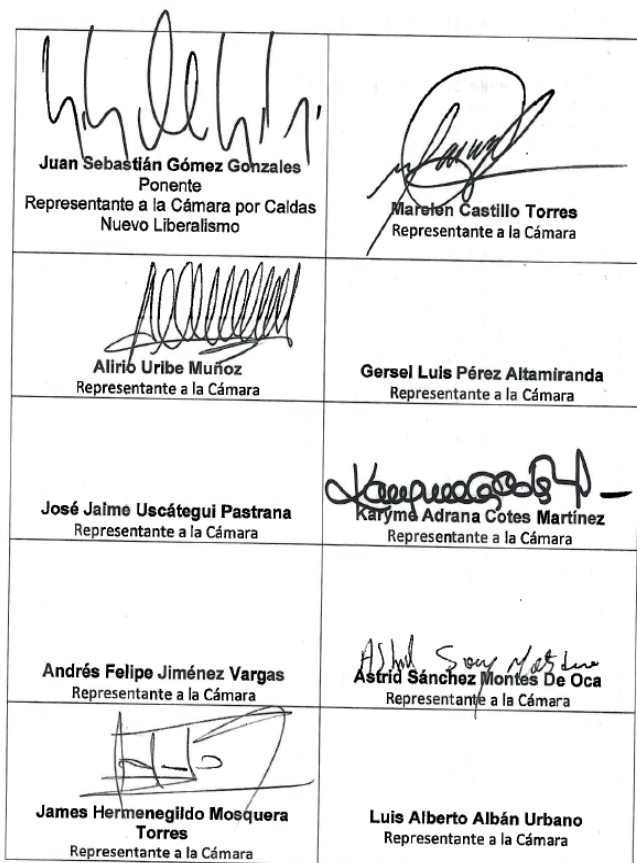 Juan Sebastián Gómez Gonzales
Ponente
Representante a la Cámara por Caldas
Nuevo Liberalismo
Marelen Castillo Torres
Representante a la Cámara
Alirio Uribe Muñoz
Representante a la Cámara
Gersel Luis Pérez Altamiranda
Representante a la Cámara
José Jaime Uscátegui Pastrana
Representante a la Cámara
Karyme Adrana Cotes Martínez
Representante a la Cámara
Andrés Felipe Jiménez Vargas
Representante a la Cámara
Astrid Sánchez Montes De Oca
Representante a la Cámara
James Hermenegildo Mosquera
Torres
Representante a la Cámara
Luis Alberto Albán Urbano
Representante a la Cámara